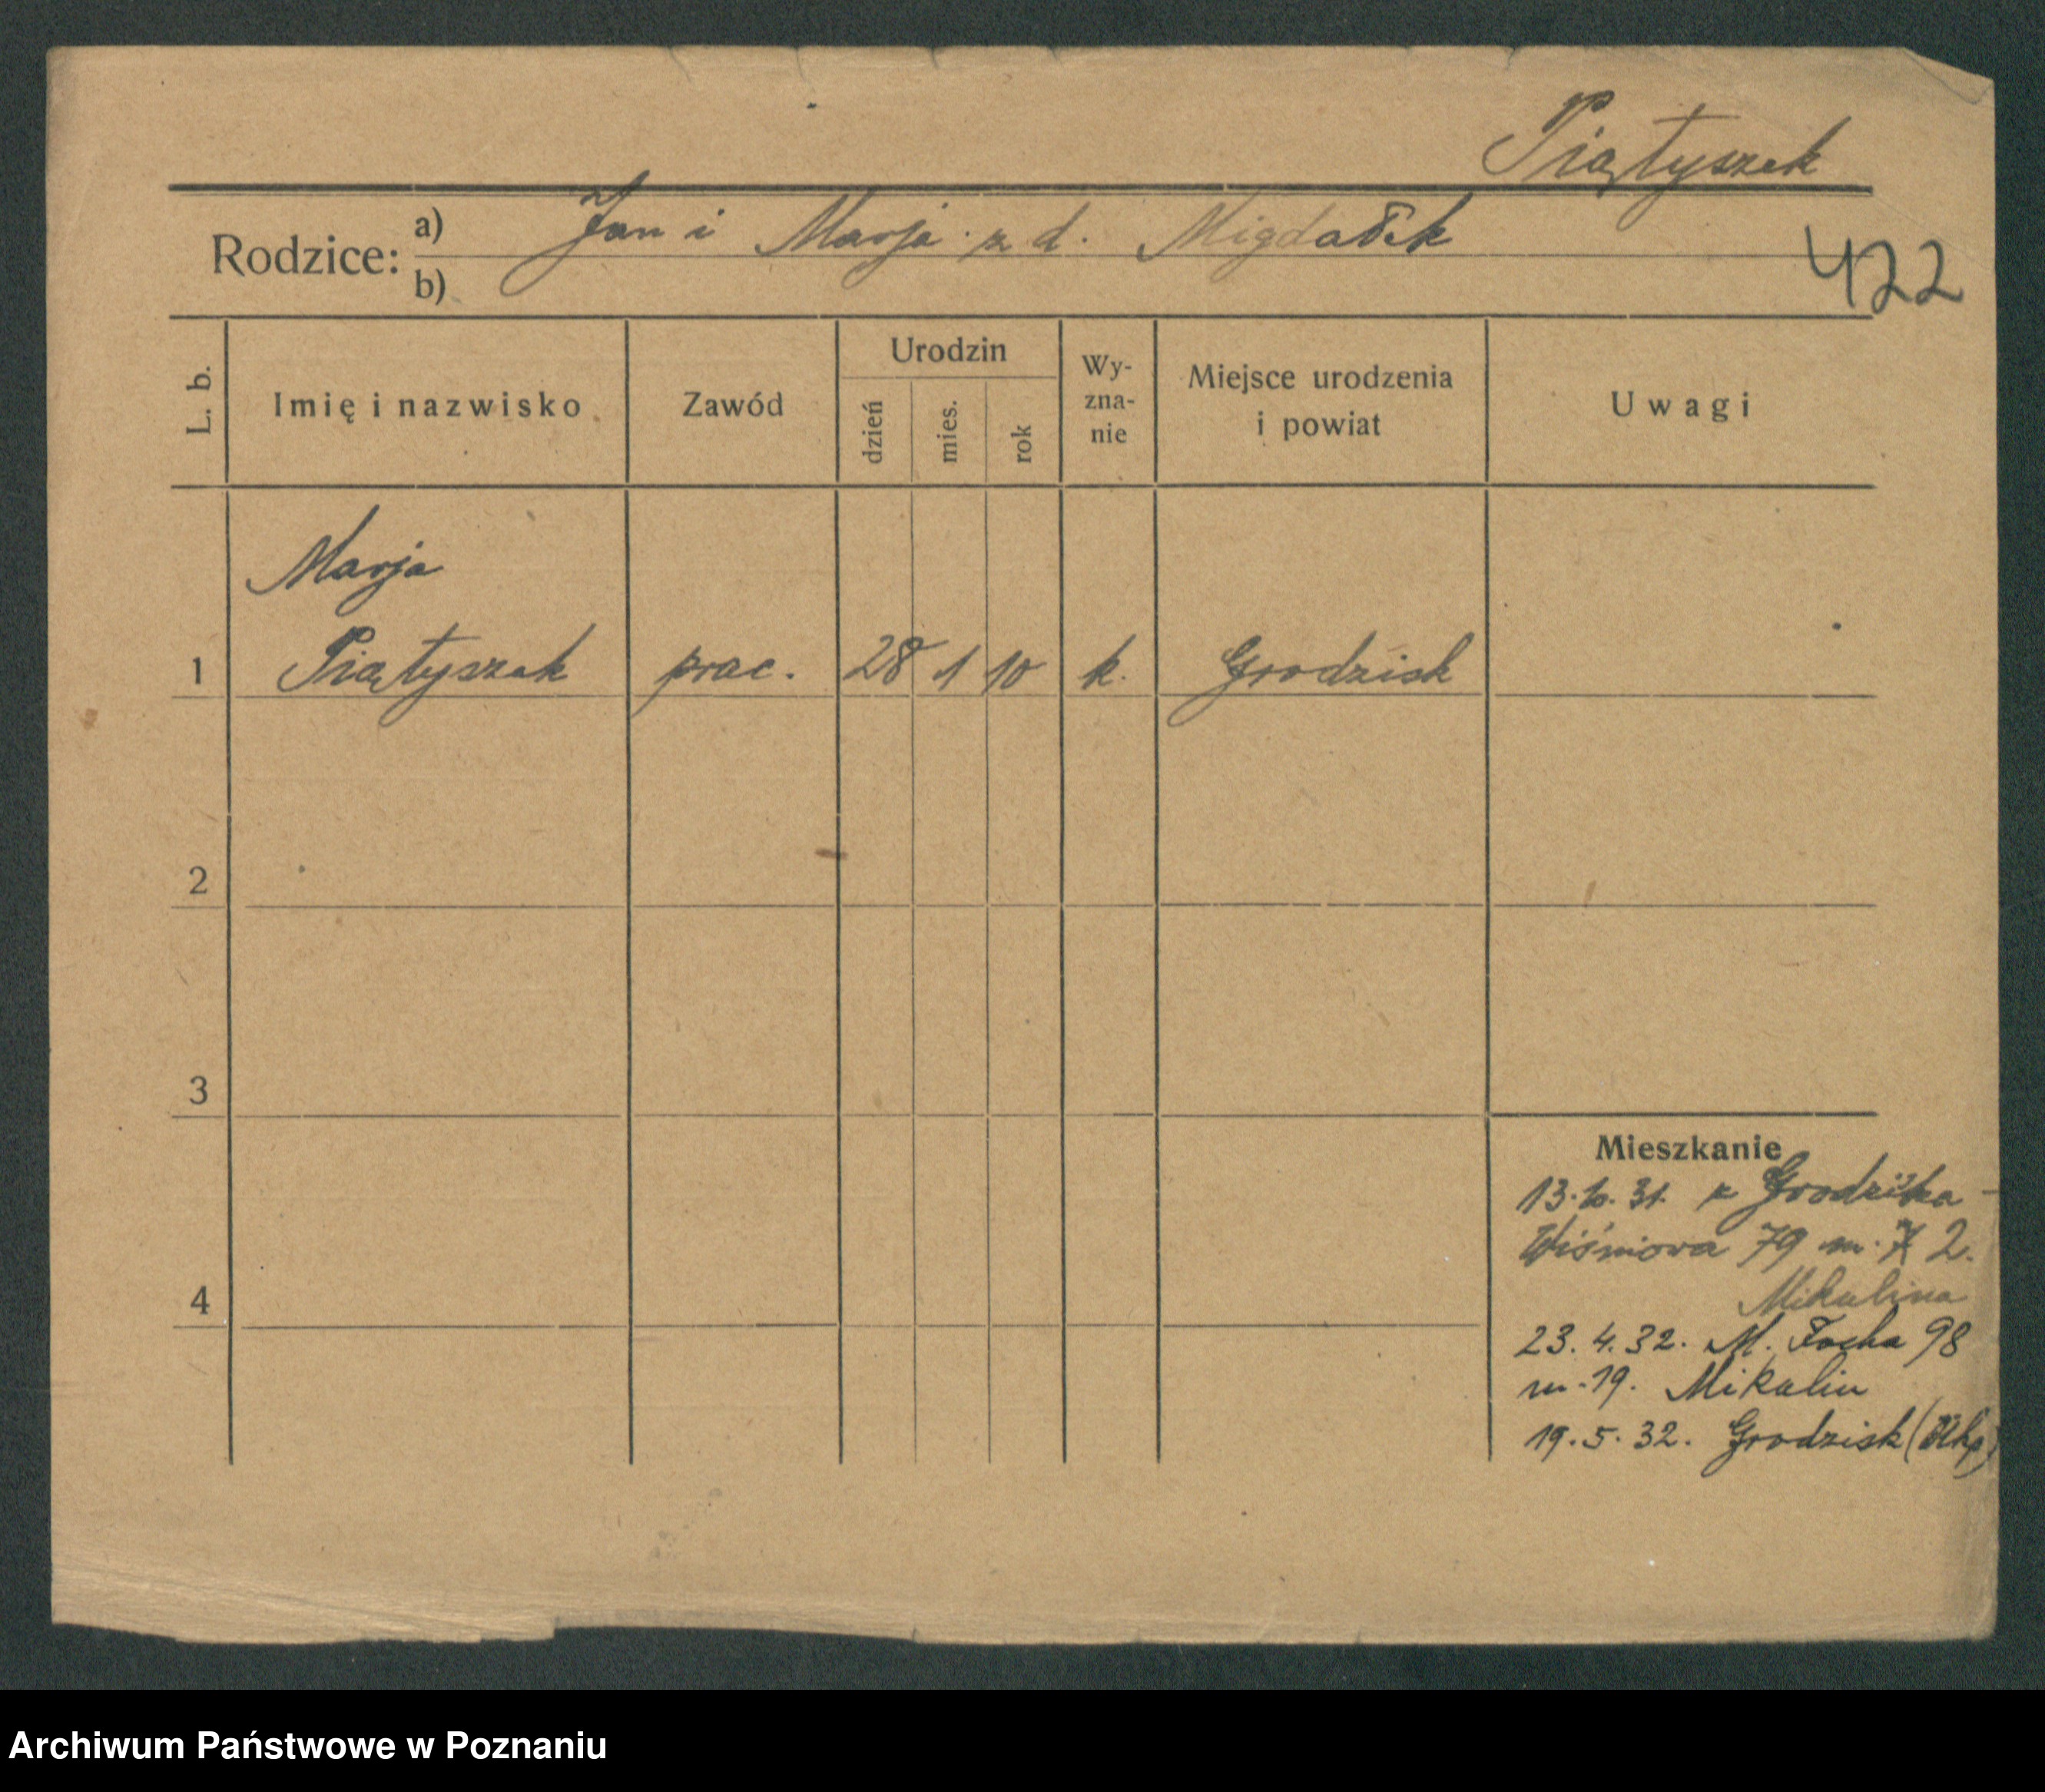 Piątyszek
Rodzice: a) Jan i Marja z d. Migdałek
b)
422
L. b.
Imię i nazwisko
Zawód
Urodzin
dzień
mies.
rok
Wy-
zna-
nie
Miejsce urodzenia
i powiat
Uwagi
Marja
1 Piątyszek prac. 28 1 10 k. Grodzisk
2
3
4
Mieszkanie
13.10.31. z Grodziska -
Wiśniowa 79 m. 2.
Mikulina
23.4.32. M. Focha 98
m. 19. Mikulin
19.5.32. Grodzisk
Archiwum Państwowe w Poznaniu